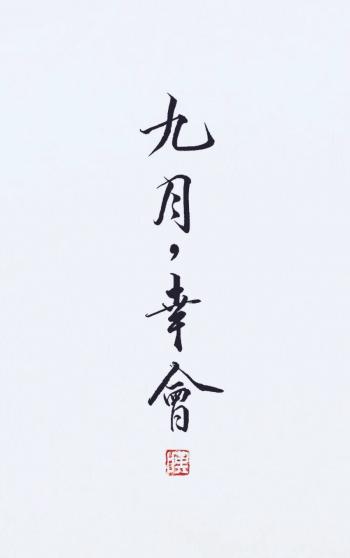 九月，幸會